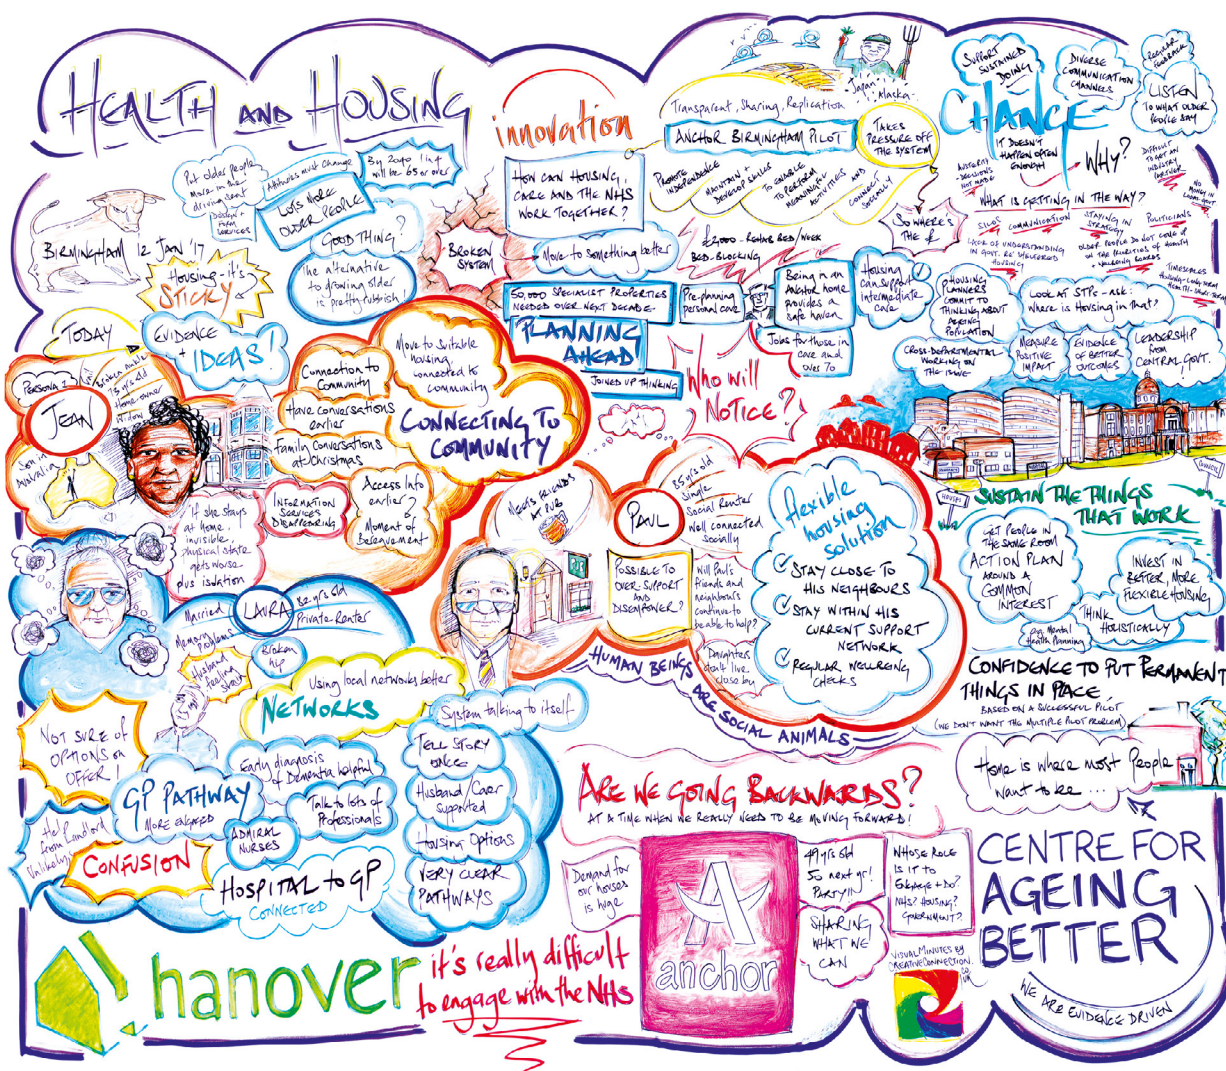 HEALTH AND HOUSING
BIRMINGHAM 12 JAN '17
Put older people
more in the
driving seat
Design +
form
services
Attitudes must change
By 2040 1 in 4
will be 65 or over
LOTS MORE
OLDER PEOPLE
GOOD THING?
The alternative
to growing older
is pretty rubbish!
Housing - it's
STICKY
EVIDENCE
+ IDEAS!
TODAY
innovation
HOW CAN HOUSING,
CARE AND THE NHS
WORK TOGETHER?
BROKEN
SYSTEM
Move to Something better
50,000 SPECIALIST PROPERTIES
NEEDED OVER NEXT DECADE-
PLANNING
AHEAD
JOINED UP THINKING
Transparent, Sharing, Replication
ANCHOR BIRMINGHAM PILOT
Japan
Alaska
TAKES
PRESSURE OFF
THE SYSTEM
PROMOTE
INDEPENDENCE
MAINTAIN +
DEVELOP SKILLS
TO ENABLE
PERFORM
MEANINGFUL
ACTIVITIES AND
CONNECT
SOCIALLY
SO WHERE'S
THE £
£2,000 - REHAB BED/WEEK
BED-BLOCKING
Pre-planning
personal care
Being in an
Anchor home
provides a
safe haven
Jobs for those in
care and
over 70
Housing
can support
intermediate
care
Who will
NOTICE?
SUPPORT
SUSTAINED
DOING
DIVERSE
COMMUNICATION
CHANNELS
REGULAR
FEEDBACK
LISTEN
TO WHAT OLDER
PEOPLE SAY
CHANGE
IT DOESN'T
HAPPEN OFTEN
ENOUGH
WHY?
DIFFICULT
TO GET AN
INDUSTRY
PARTNER
AUSTERITY
DECISIONS
NOT MADE
NO MONEY IN
LOCAL GOVT.
WHAT IS GETTING IN THE WAY?
SILOS
COMMUNICATION
STAYING IN
STRATEGY
POLITICIANS
LACK OF UNDERSTANDING
IN GOVT. RE SHELTERED
HOUSING
OLDER PEOPLE DO NOT COME UP
ON THE PRIORITIES OF HEALTH
+ WELLBEING BOARDS
TIMESCALES
HOUSING - LONG TERM
HEALTH - SHORT-TERM
HOUSING
PLANNERS
COMMIT TO
THINKING ABOUT
AGEING
POPULATION
LOOK AT STPs - ASK:
Where is Housing in that?
CROSS-DEPARTMENTAL
WORKING ON
THE ISSUE
MEASURE
POSITIVE
IMPACT
EVIDENCE
OF BETTER
OUTCOMES
LEADERSHIP
FROM
CENTRAL GOVT.
Persona 1
JEAN
Broken ankle
73 yrs old
Home owner
Widow
Son in
Australia
Connection to
Community
Have conversations
earlier
Family Conversations
at Christmas
INFORMATION
SERVICES
DISAPPEARING
Access Info
earlier
Moment of
Bereavement
Move to Suitable
housing,
connected to
community
CONNECTING TO
COMMUNITY
If she stays
at home,
invisible,
physical state
gets worse
plus isolation
Meets FRIENDS
AT PUB
PAUL
85 yrs old
Single
Social Renter
Well connected
socially
POSSIBLE TO
OVER-SUPPORT
AND
DISEMPOWER?
Will Paul's
friends and
neighbours
continue to
be able to help?
Daughters
don't live
close by
flexible
housing
solution
STAY CLOSE TO
HIS NEIGHBOURS
STAY WITHIN HIS
CURRENT SUPPORT
NETWORK
REGULAR WELLBEING
CHECKS
HUMAN BEINGS ARE SOCIAL ANIMALS
HOUSES
COUNCIL
SUSTAIN THE THINGS
THAT WORK
GET PEOPLE IN
THE SAME ROOM
ACTION PLAN
AROUND A
COMMON
INTEREST
INVEST IN
BETTER, MORE
FLEXIBLE HOUSING
THINK
HOLISTICALLY
e.g. Mental
Health Planning
CONFIDENCE TO PUT PERMANENT
THINGS IN PLACE,
BASED ON A SUCCESSFUL PILOT
(WE DON'T WANT THE MULTIPLE PILOT PROBLEM)
Home is where most People
want to be ...
Married
LAURA
82 yrs old
Private Renter
Memory
Problems
Husband
feeling
stress
Broken
hip
Using local networks better
NETWORKS
NOT SURE OF
OPTIONS ON
OFFER!
GP PATHWAY
MORE ENGAGED
Early diagnosis
of Dementia helpful
Talk to lots of
Professionals
ADMIRAL
NURSES
Help from landlord
Unlikely
CONFUSION
HOSPITAL to GP
CONNECTED
System talking to itself
TELL STORY
ONCE
Husband/Carer
Supported
Housing Options
VERY CLEAR
PATHWAYS
ARE WE GOING BACKWARDS?
AT A TIME WHEN WE REALLY NEED TO BE MOVING FORWARD!
Demand for
our houses
is huge
anchor
49 yrs old
50 next yr!
PARTY!!
SHARING
WHAT WE
CAN
WHOSE ROLE
IS IT TO
ENGAGE + DO?
NHS? HOUSING?
GOVERNMENT?
VISUAL MINUTES BY
CREATIVECONNECTION.
CO.
UK
hanover
it's really difficult
to engage with the NHS
CENTRE FOR
AGEING
BETTER
WE ARE EVIDENCE DRIVEN